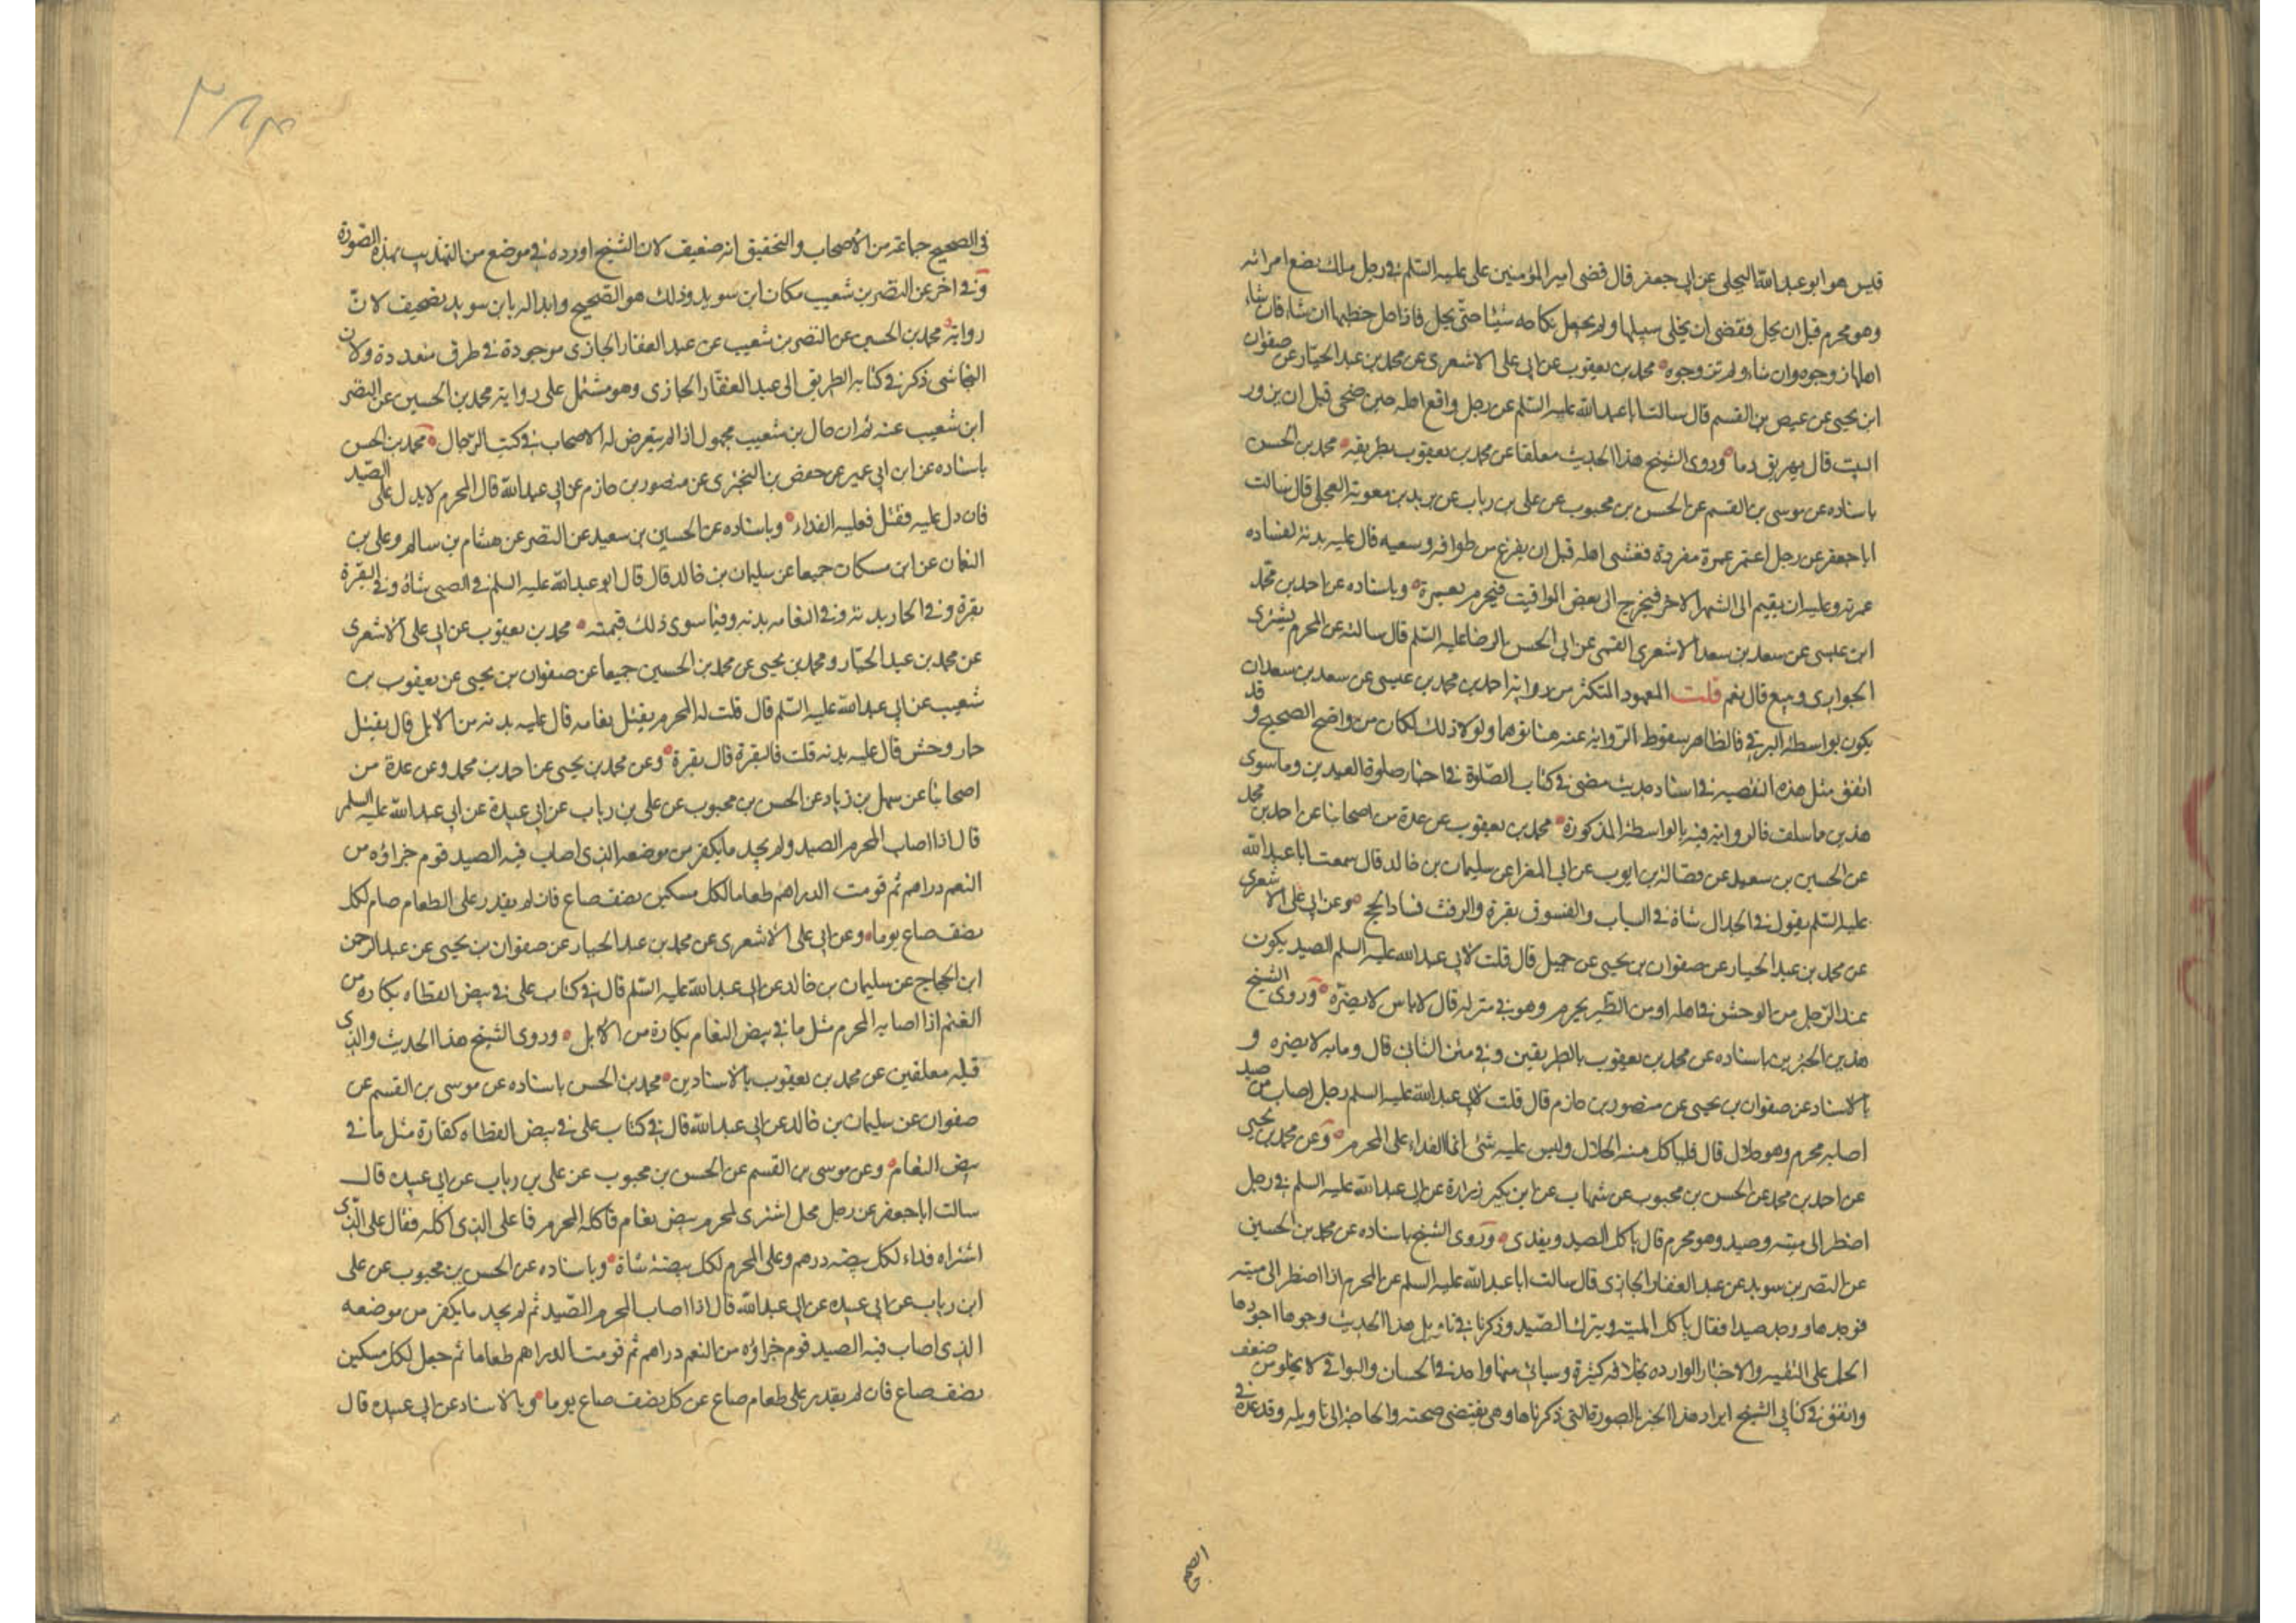 قيس هو ابو عبدالله البجلى عن ابى جعفر قال قضى امير المؤمنين على عليه السلم فى رجل ملك بضع امراته
وهو محرم قبل ان يحل فقضى ان يخلى سبيلها ولم يجعل نكاحه شيئا حتى يحل فاذا حل خطبها ان شاء فان شاء
اهلها زوجوه وان شاءوا لم تزوجوه محمد بن يعقوب عن ابى على الاشعرى عن محمد بن عبد الجبار عن صفوان
ابن يحيى عن عيص بن القسم قال سالت ابا عبدالله عليه السلم عن رجل واقع اهله حين ضحى قبل ان يزور
البيت قال يهريق دما وروى الشيخ هذا الحديث معلقا عن محمد بن يعقوب بطريقه محمد بن الحسن
باسناده عن موسى بن القسم عن الحسن بن محبوب عن على بن رباب عن بريد بن معوية العجلى قال سالت
ابا جعفر عن رجل اعتمر عمرة مفردة فغشى اهله قبل ان يفرغ من طوافه وسعيه قال عليه بدنة لفساده
عمرته وعليه ان يقيم الى الشهر الاخر فيخرج الى بعض المواقيت فيحرم بعمرة وباسناده عن احمد بن محمد
ابن عيسى عن سعد بن سعد الاشعرى القمى عن ابى الحسن الرضا عليه السلم قال سالته عن المحرم يشترى
الجوارى ويبيع قال نعم قلت المعهود المتكثر من رواية احمد بن محمد بن عيسى عن سعد بن سعد ان
يكون بواسطة البرقى فالظاهر سقوط الرواية عنه هنا توهما ولولا ذلك لكان من واضح الصحيح وقد
اتفق مثل هذه النقيصه فى اسناد حديث مضى فى كتاب الصلوة فى اخبار صلوة العيدين وما سوى
هذين ما سلف فالرواية فيه بالواسطة المذكورة محمد بن يعقوب عن عدة من اصحابنا عن احمد بن محمد
عن الحسين بن سعيد عن فضالة بن ايوب عن ابى المغرا عن سليمان بن خالد قال سمعت ابا عبدالله
عليه السلم يقول فى الجدال شاة فى السباب والفسوق بقرة والرفث فساد الحج وعن ابى على الاشعرى
عن محمد بن عبد الجبار عن صفوان بن يحيى عن جميل قال قلت لابى عبدالله عليه السلم الصيد يكون
عند الرجل من الوحش فى اهله او من الطير يحرم وهو فى منزله قال لا باس لا يضره وروى الشيخ
هذين الخبرين باسناده عن محمد بن يعقوب بالطريقين وفى متن الثانى قال وما به لا يضره و
بالاسناد عن صفوان بن يحيى عن منصور بن حازم قال قلت لابى عبدالله عليه السلم رجل اصاب من صيد
اصابه محرم وهو حلال قال فلياكل منه الحلال وليس عليه شئ انما الفداء على المحرم وعن محمد بن يحيى
عن احمد بن محمد عن الحسن بن محبوب عن شهاب عن ابن بكير زرارة عن ابى عبدالله عليه السلم فى رجل
اضطر الى ميتة وصيد وهو محرم قال ياكل الصيد ويفدى وروى الشيخ باسناده عن محمد بن الحسين
عن النضر بن سويد عن عبد الغفار الجازى قال سالت ابا عبدالله عليه السلم عن المحرم اذا اضطر الى ميتة
فوجدها ووجد صيدا فقال ياكل الميتة ويترك الصيد وذكرنا فى تاويل هذا الحديث وجوها اجودها
الحمل على التقية والاخبار الوارده بخلافه كثيرة وسياتى منها واحد فى الحسان والبواقى لا يخلو من ضعف
واتفق فى كتابى الشيخ ايراد هذا الخبر بالصورة التى ذكرناها وهى يقتضى صحته والحاجة الى تاويله وقد عده فى
الصحيح
فى الصحيح جماعة من الاصحاب والتحقيق انه ضعيف لان الشيخ اورده فى موضع من التهذيب بهذه الصورة
وفى اخر عن النضر بن شعيب مكان ابن سويد وذلك هو الصحيح وابداله بابن سويد تصحيف لان
رواية محمد بن الحسين عن النضر بن شعيب عن عبد الغفار الجازى موجودة فى طرق متعددة ولان
النجاشى ذكر فى كتابه الطريق الى عبد الغفار الجازى وهو مشتمل على رواية محمد بن الحسين عن النضر
ابن شعيب عنه ثم ان حال بن شعيب مجهول اذ لم يتعرض له الاصحاب فى كتب الرجال محمد بن الحسن
باسناده عن ابن ابى عمير عن حفص بن البخترى عن منصور بن حازم عن ابى عبدالله قال المحرم لا يدل على الصيد
فان دل عليه فقتل فعليه الفداء وباسناده عن الحسين بن سعيد عن النضر عن هشام بن سالم وعلى بن
النعمان عن ابن مسكان جميعا عن سليمان بن خالد قال قال ابو عبدالله عليه السلم فى الصبى شاة وفى البقرة
بقرة وفى الحمار بدنة وفى النعامه بدنه وفيما سوى ذلك قيمته محمد بن يعقوب عن ابى على الاشعرى
عن محمد بن عبد الجبار ومحمد بن يحيى عن محمد بن الحسين جميعا عن صفوان بن يحيى عن يعقوب بن
شعيب عن ابى عبدالله عليه السلم قال قلت له المحرم يقتل نعامه قال عليه بدنه من الابل قال يقتل
حمار وحش قال عليه بدنه قلت فالبقرة قال بقرة وعن محمد بن يحيى عن احمد بن محمد وعن عدة من
اصحابنا عن سهل بن زياد عن الحسن بن محبوب عن على بن رباب عن ابى عبيدة عن ابى عبدالله عليه السلم
قال اذا اصاب المحرم الصيد ولم يجد ما يكفر من موضعه الذى اصاب فيه الصيد قوم جزاؤه من
النعم دراهم ثم قومت الدراهم طعاما لكل مسكين نصف صاع فان لم يقدر على الطعام صام لكل
نصف صاع يوما وعن ابى على الاشعرى عن محمد بن عبد الجبار عن صفوان بن يحيى عن عبد الرحمن
ابن الحجاج عن سليمان بن خالد عن ابى عبدالله عليه السلم قال فى كتاب على فى بيض القطاه بكاره من
الغنم اذا اصابه المحرم مثل ما فى بيض النعام بكارة من الابل وروى الشيخ هذا الحديث والذى
قبله معلقين عن محمد بن يعقوب بالاسنادين محمد بن الحسن باسناده عن موسى بن القسم عن
صفوان عن سليمان بن خالد عن ابى عبدالله قال فى كتاب على فى بيض القطاه كفارة مثل ما فى
بيض النعام وعن موسى بن القسم عن الحسن بن محبوب عن على بن رباب عن ابى عبيده قال
سالت ابا جعفر عن رجل محل اشترى لمحرم بيض نعام فاكله المحرم فما على الذى اكله فقال على الذى
اشتراه فداء لكل بيضه درهم وعلى المحرم لكل بيضة شاة وباسناده عن الحسن بن محبوب عن على
ابن رباب عن ابى عبيده عن ابى عبدالله قال اذا اصاب المحرم الصيد ثم لم يجد ما يكفر من موضعه
الذى اصاب فيه الصيد قوم جزاؤه من النعم دراهم ثم قومت الدراهم طعاما ثم جعل لكل مسكين
نصف صاع فان لم يقدر على طعام صاع عن كل نصف صاع يوما وبالاسناد عن ابى عبيده قال